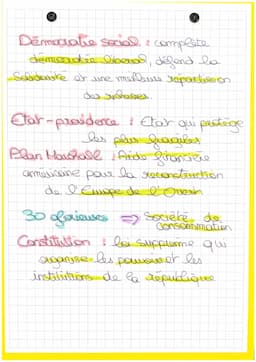 Démocratie social : complète
démocratie libéral, défend la
solidarité et une meilleure répartition
des richesses.
Etat-providence : Etat qui protège
les plus fragiles
Plan Marshall : Aide financière
américaine pour la reconstruction
de l'Europe de l'Ouest
30 glorieuses ⇒ Société de
consommation
Constitution : loi suprême qui
organise les pouvoirs et les
institutions de la république